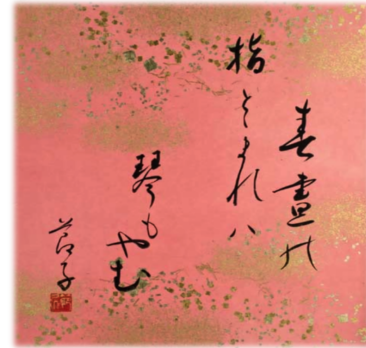 春晝の
指とまれハ
琴もやむ
節子